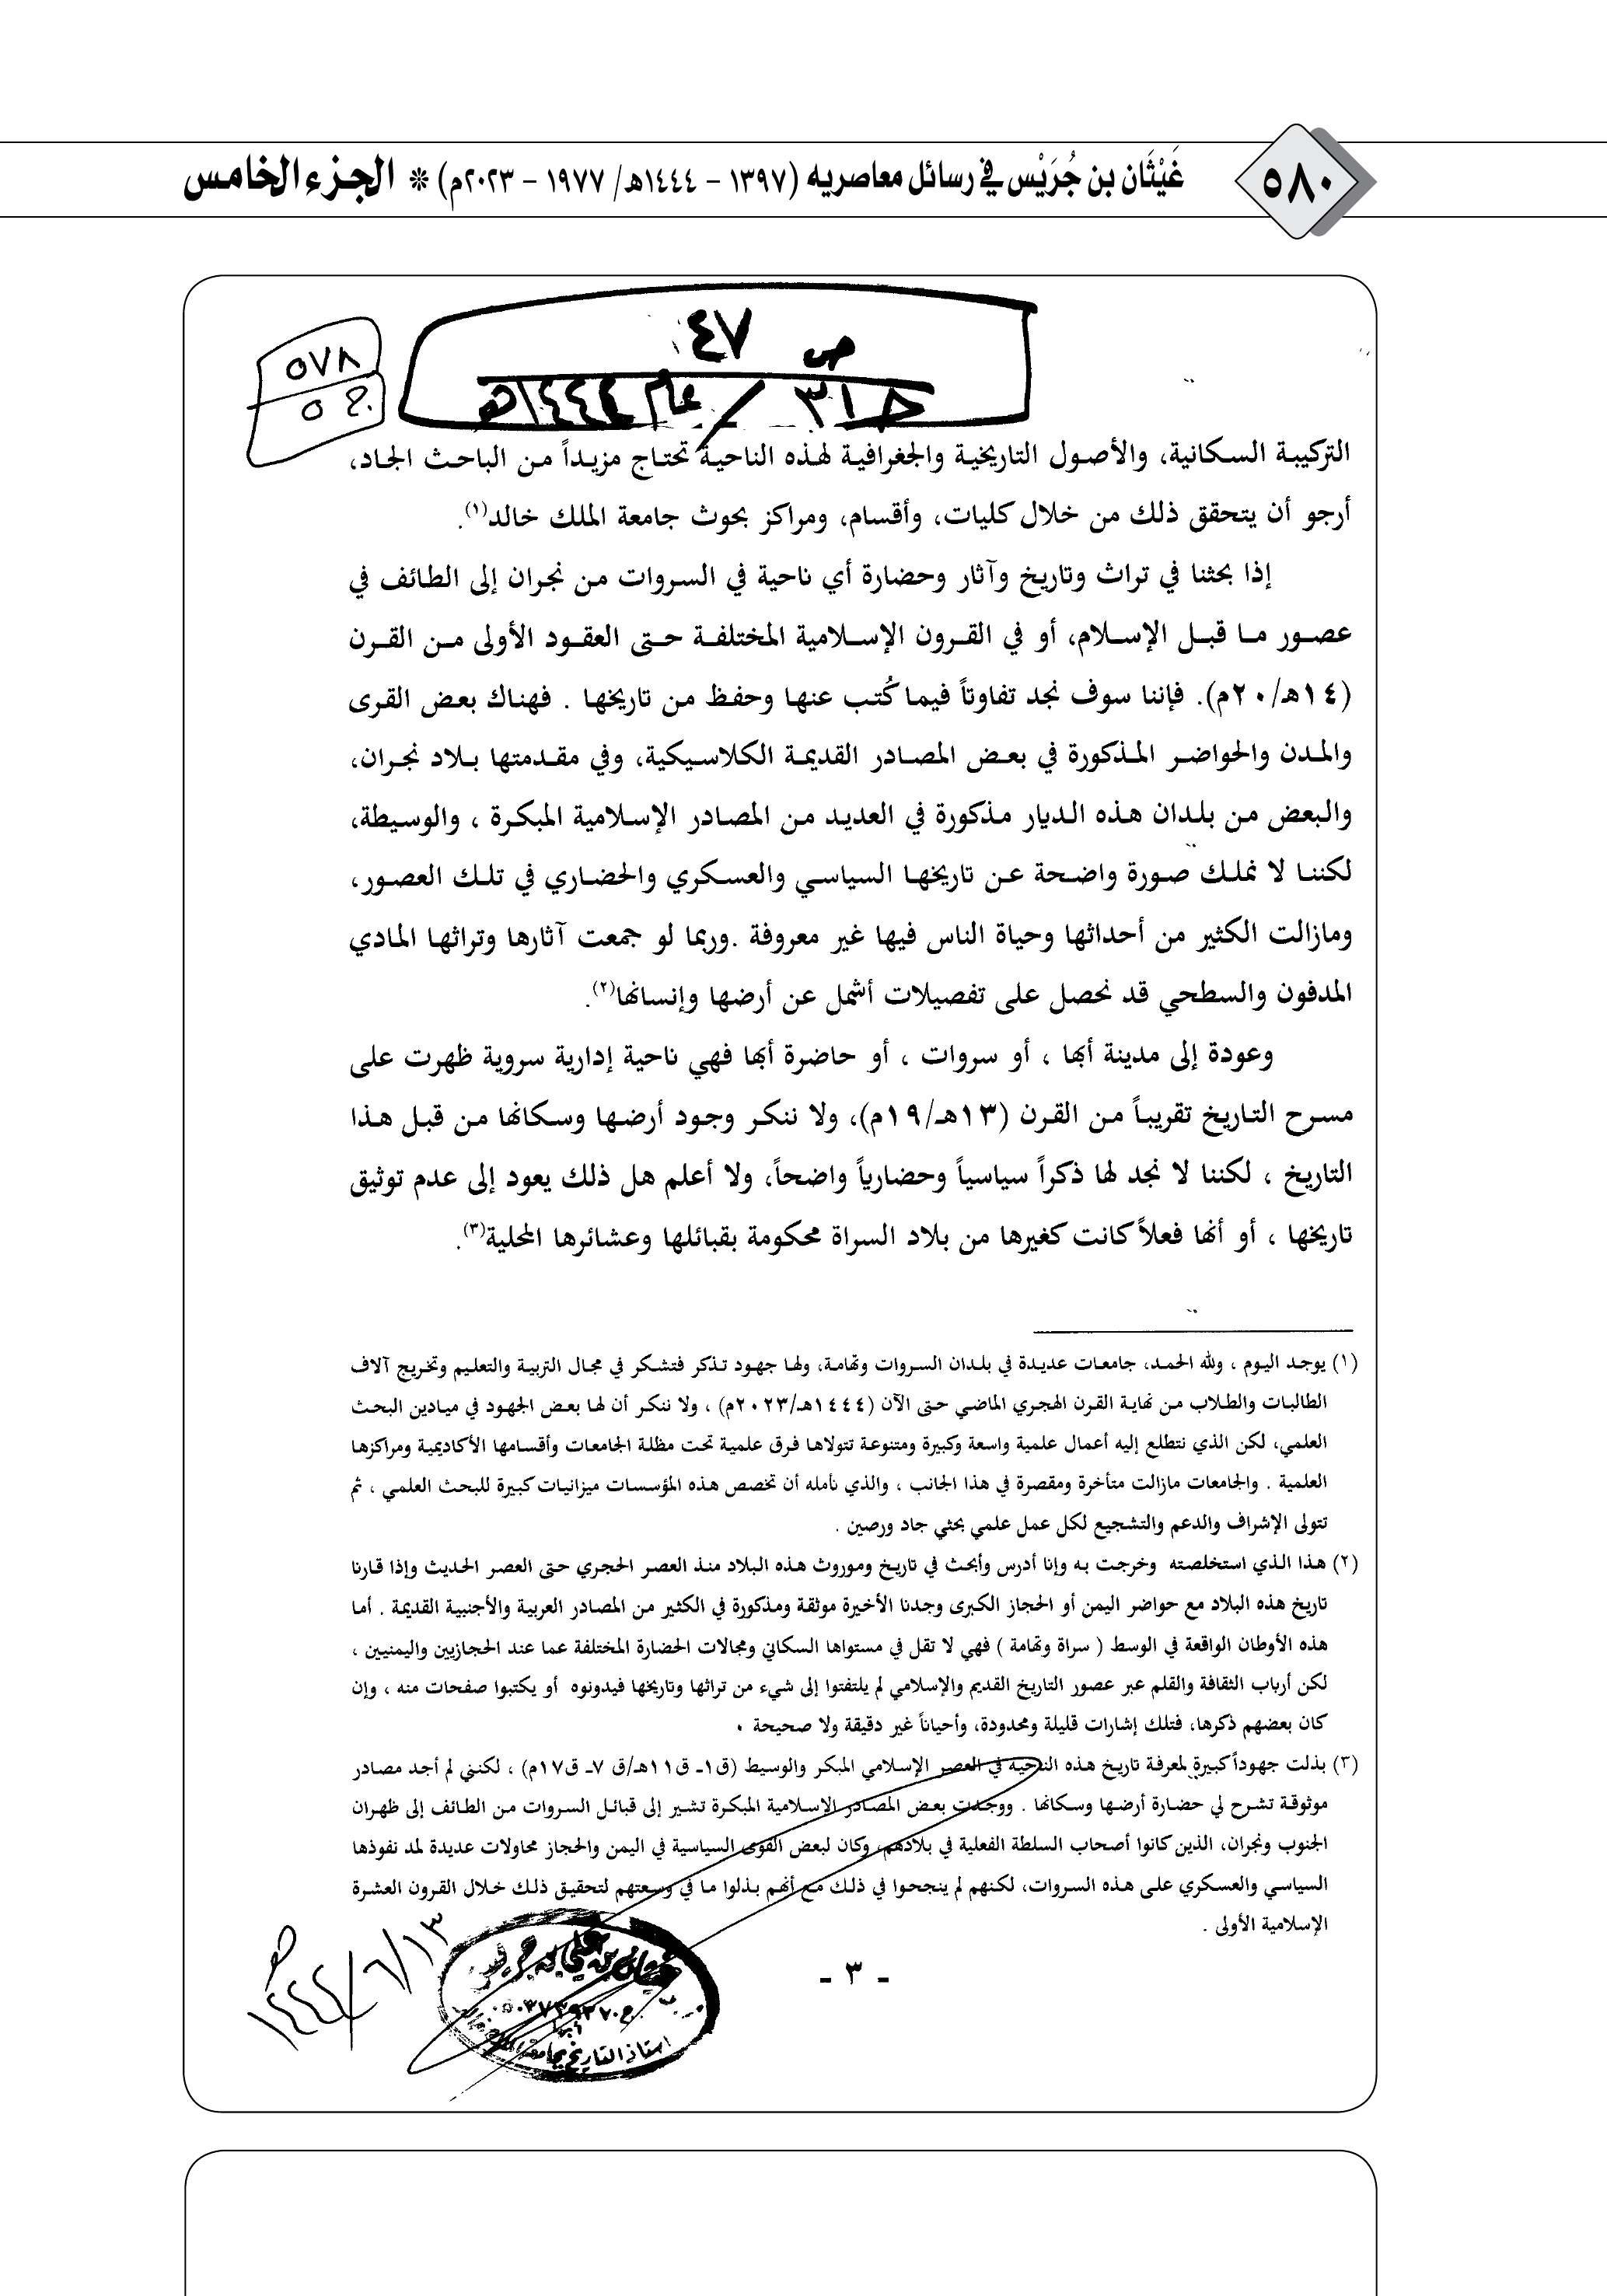 ٥٨٠
غَيْثَان بن جُرَيْس في رسائل معاصريه (١٣٩٧ – ١٤٤٤هـ/ ١٩٧٧ – ٢٠٢٣م) * الجزء الخامس
ص ٤٧
ج٣١ / عام ١٤٤٤هـ
٥٧٨
ج ٥
التركيبة السكانية، والأصول التاريخية والجغرافية لهذه الناحية تحتاج مزيداً من الباحث الجاد،
أرجو أن يتحقق ذلك من خلال كليات، وأقسام، ومراكز بحوث جامعة الملك خالد(١).
إذا بحثنا في تراث وتاريخ وآثار وحضارة أي ناحية في السروات من نجران إلى الطائف في
عصور ما قبل الإسلام، أو في القرون الإسلامية المختلفة حتى العقود الأولى من القرن
(١٤هـ/٢٠م). فإننا سوف نجد تفاوتاً فيما كُتب عنها وحفظ من تاريخها . فهناك بعض القرى
والمدن والحواضر المذكورة في بعض المصادر القديمة الكلاسيكية، وفي مقدمتها بلاد نجران،
والبعض من بلدان هذه الديار مذكورة في العديد من المصادر الإسلامية المبكرة ، والوسيطة،
لكننا لا نملك صورة واضحة عن تاريخها السياسي والعسكري والحضاري في تلك العصور،
ومازالت الكثير من أحداثها وحياة الناس فيها غير معروفة .وربما لو جمعت آثارها وتراثها المادي
المدفون والسطحي قد نحصل على تفصيلات أشمل عن أرضها وإنسانها(٢).
وعودة إلى مدينة أبها ، أو سروات ، أو حاضرة أبها فهي ناحية إدارية سروية ظهرت على
مسرح التاريخ تقريباً من القرن (١٣هـ/١٩م)، ولا ننكر وجود أرضها وسكانها من قبل هذا
التاريخ ، لكننا لا نجد لها ذكراً سياسياً وحضارياً واضحاً، ولا أعلم هل ذلك يعود إلى عدم توثيق
تاريخها ، أو أنها فعلاً كانت كغيرها من بلاد السراة محكومة بقبائلها وعشائرها المحلية(٣).
(١) يوجد اليوم ، ولله الحمد، جامعات عديدة في بلدان السروات وتهامة، ولها جهود تذكر فتشكر في مجال التربية والتعليم وتخريج آلاف
الطالبات والطلاب من نهاية القرن الهجري الماضي حتى الآن (١٤٤٤هـ/٢٠٢٣م) ، ولا ننكر أن لها بعض الجهود في ميادين البحث
العلمي، لكن الذي نتطلع إليه أعمال علمية واسعة وكبيرة ومتنوعة تتولاها فرق علمية تحت مظلة الجامعات وأقسامها الأكاديمية ومراكزها
العلمية . والجامعات مازالت متأخرة ومقصرة في هذا الجانب ، والذي نأمله أن تخصص هذه المؤسسات ميزانيات كبيرة للبحث العلمي ، ثم
تتولى الإشراف والدعم والتشجيع لكل عمل علمي بحثي جاد ورصين .
(٢) هذا الذي استخلصته وخرجت به وإنا أدرس وأبحث في تاريخ وموروث هذه البلاد منذ العصر الحجري حتى العصر الحديث وإذا قارنا
تاريخ هذه البلاد مع حواضر اليمن أو الحجاز الكبرى وجدنا الأخيرة موثقة ومذكورة في الكثير من المصادر العربية والأجنبية القديمة . أما
هذه الأوطان الواقعة في الوسط ( سراة وتهامة ) فهي لا تقل في مستواها السكاني ومجالات الحضارة المختلفة عما عند الحجازيين واليمنيين ،
لكن أرباب الثقافة والقلم عبر عصور التاريخ القديم والإسلامي لم يلتفتوا إلى شيء من تراثها وتاريخها فيدونوه أو يكتبوا صفحات منه ، وإن
كان بعضهم ذكرها، فتلك إشارات قليلة ومحدودة، وأحياناً غير دقيقة ولا صحيحة .
(٣) بذلت جهوداً كبيرة لمعرفة تاريخ هذه الناحية في العصر الإسلامي المبكر والوسيط (ق١ـ ق١١هـ/ق ٧ـ ق١٧م) ، لكنني لم أجد مصادر
موثوقة تشرح لي حضارة أرضها وسكانها . ووجدت بعض المصادر الإسلامية المبكرة تشير إلى قبائل السروات من الطائف إلى ظهران
الجنوب ونجران، الذين كانوا أصحاب السلطة الفعلية في بلادهم، وكان لبعض القوى السياسية في اليمن والحجاز محاولات عديدة لمد نفوذها
السياسي والعسكري على هذه السروات، لكنهم لم ينجحوا في ذلك مع أنهم بذلوا ما في وسعتهم لتحقيق ذلك خلال القرون العشرة
الإسلامية الأولى .
- ٣ -
١٤٤٤/٦/١٣هـ
بن علي بن جريس
أبها
استاذ التاريخ بجامعة